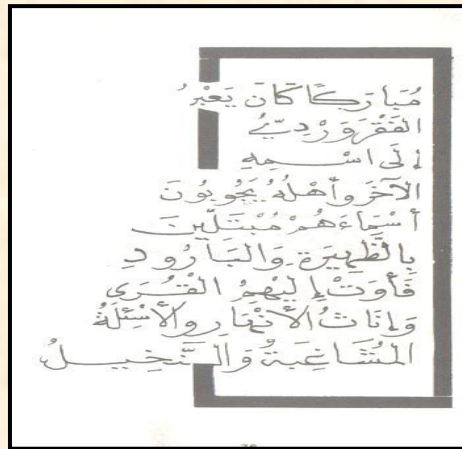 مُبَارَكًا كَانَ يَعْبُرُ
الفَقْرَ وَرْدِيُّ
إِلَى اسْمِهِ
الآخَرَ وأَهْلُهُ يَجُوبُونَ
أَسْمَاءَهُمْ مُبْتَلِّينَ
بِالظَّهِيرَةِ وَالبَارُودِ
فَأَوَتْ إِلَيْهِمُ القُرَى
وَإِنَاثُ الأَنْهَارِ والأَسْئِلَةُ
المُشَاغِبَةُ وَالنَّخِيلُ